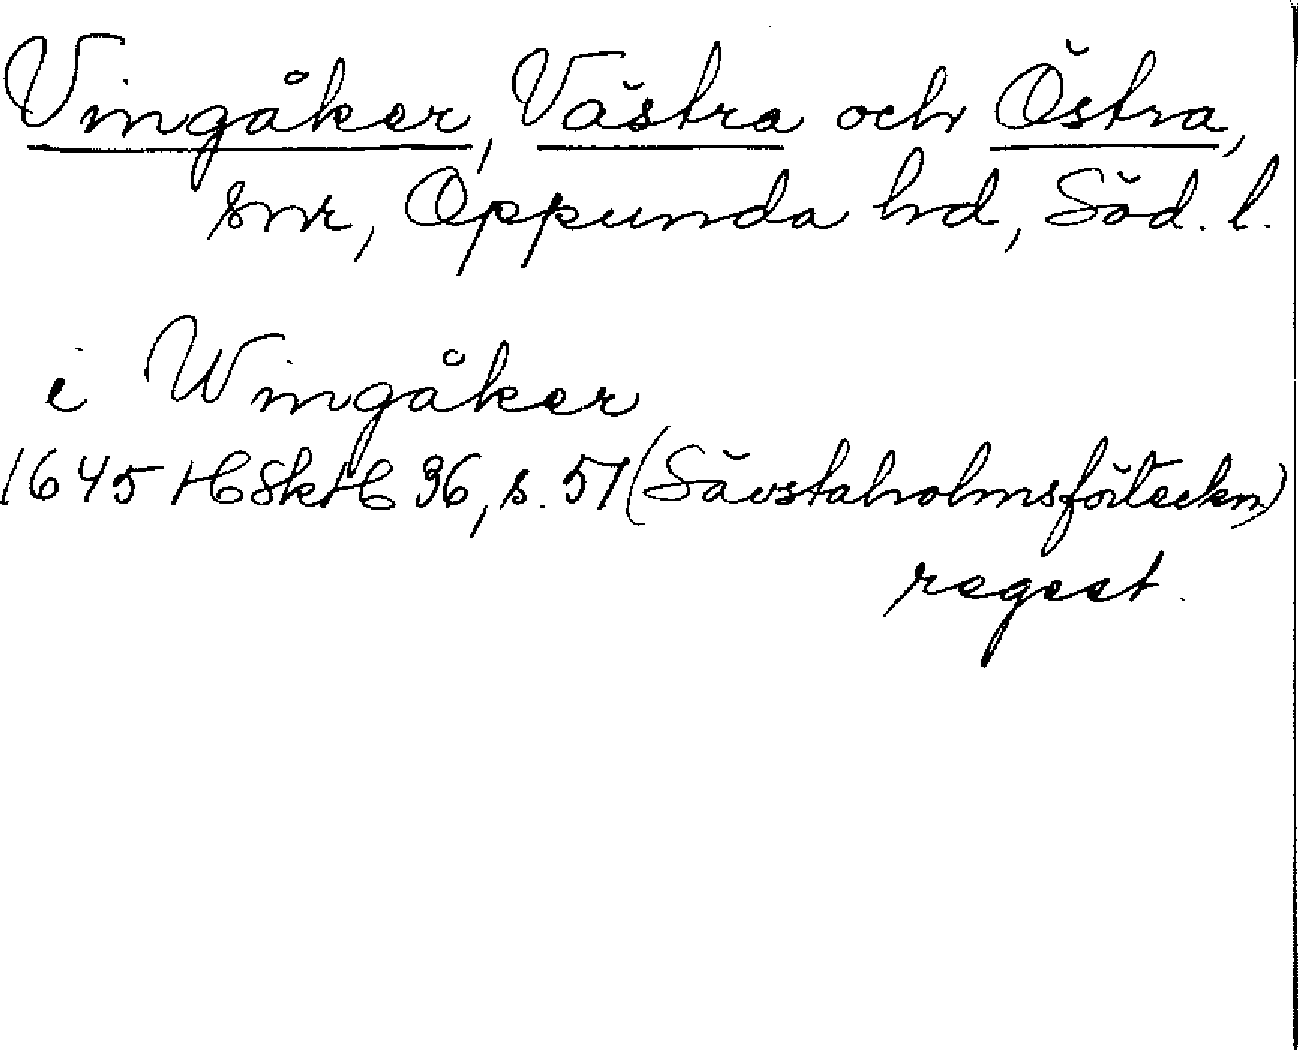 Vingåker, Västra och Östra,
snr, Oppunda hd, Söd. l.
i Wingåker
1645 HSkH 36, s. 57 (Sävstaholmsförteckn)
regest.